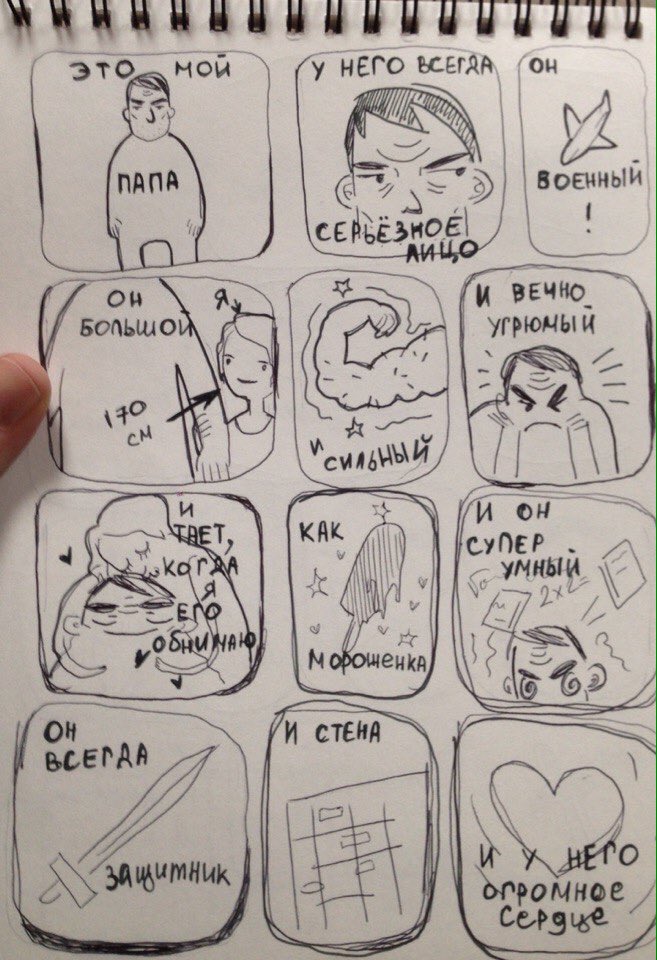 ЭТО МОЙ
ПАПА
У НЕГО ВСЕГДА
СЕРЬЁЗНОЕ
ЛИЦО
ОН
ВОЕННЫЙ
!
ОН
БОЛЬШОЙ
Я
170
СМ
И
СИЛЬНЫЙ
И ВЕЧНО
УГРЮМЫЙ
И
ТАЕТ,
КОГДА
Я
ЕГО
ОБНИМАЮ
КАК
МОРОШЕНКА
И ОН
СУПЕР
УМНЫЙ
2x2=
ОН
ВСЕГДА
ЗАЩИТНИК
И СТЕНА
И У НЕГО
ОГРОМНОЕ
СЕРДЦЕ